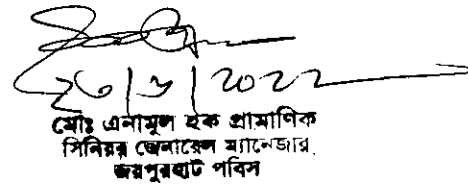 ২৬/৯/2022
মোঃ এনামুল হক প্রামাণিক
সিনিয়র জেনারেল ম্যানেজার
জয়পুরহাট পবিস